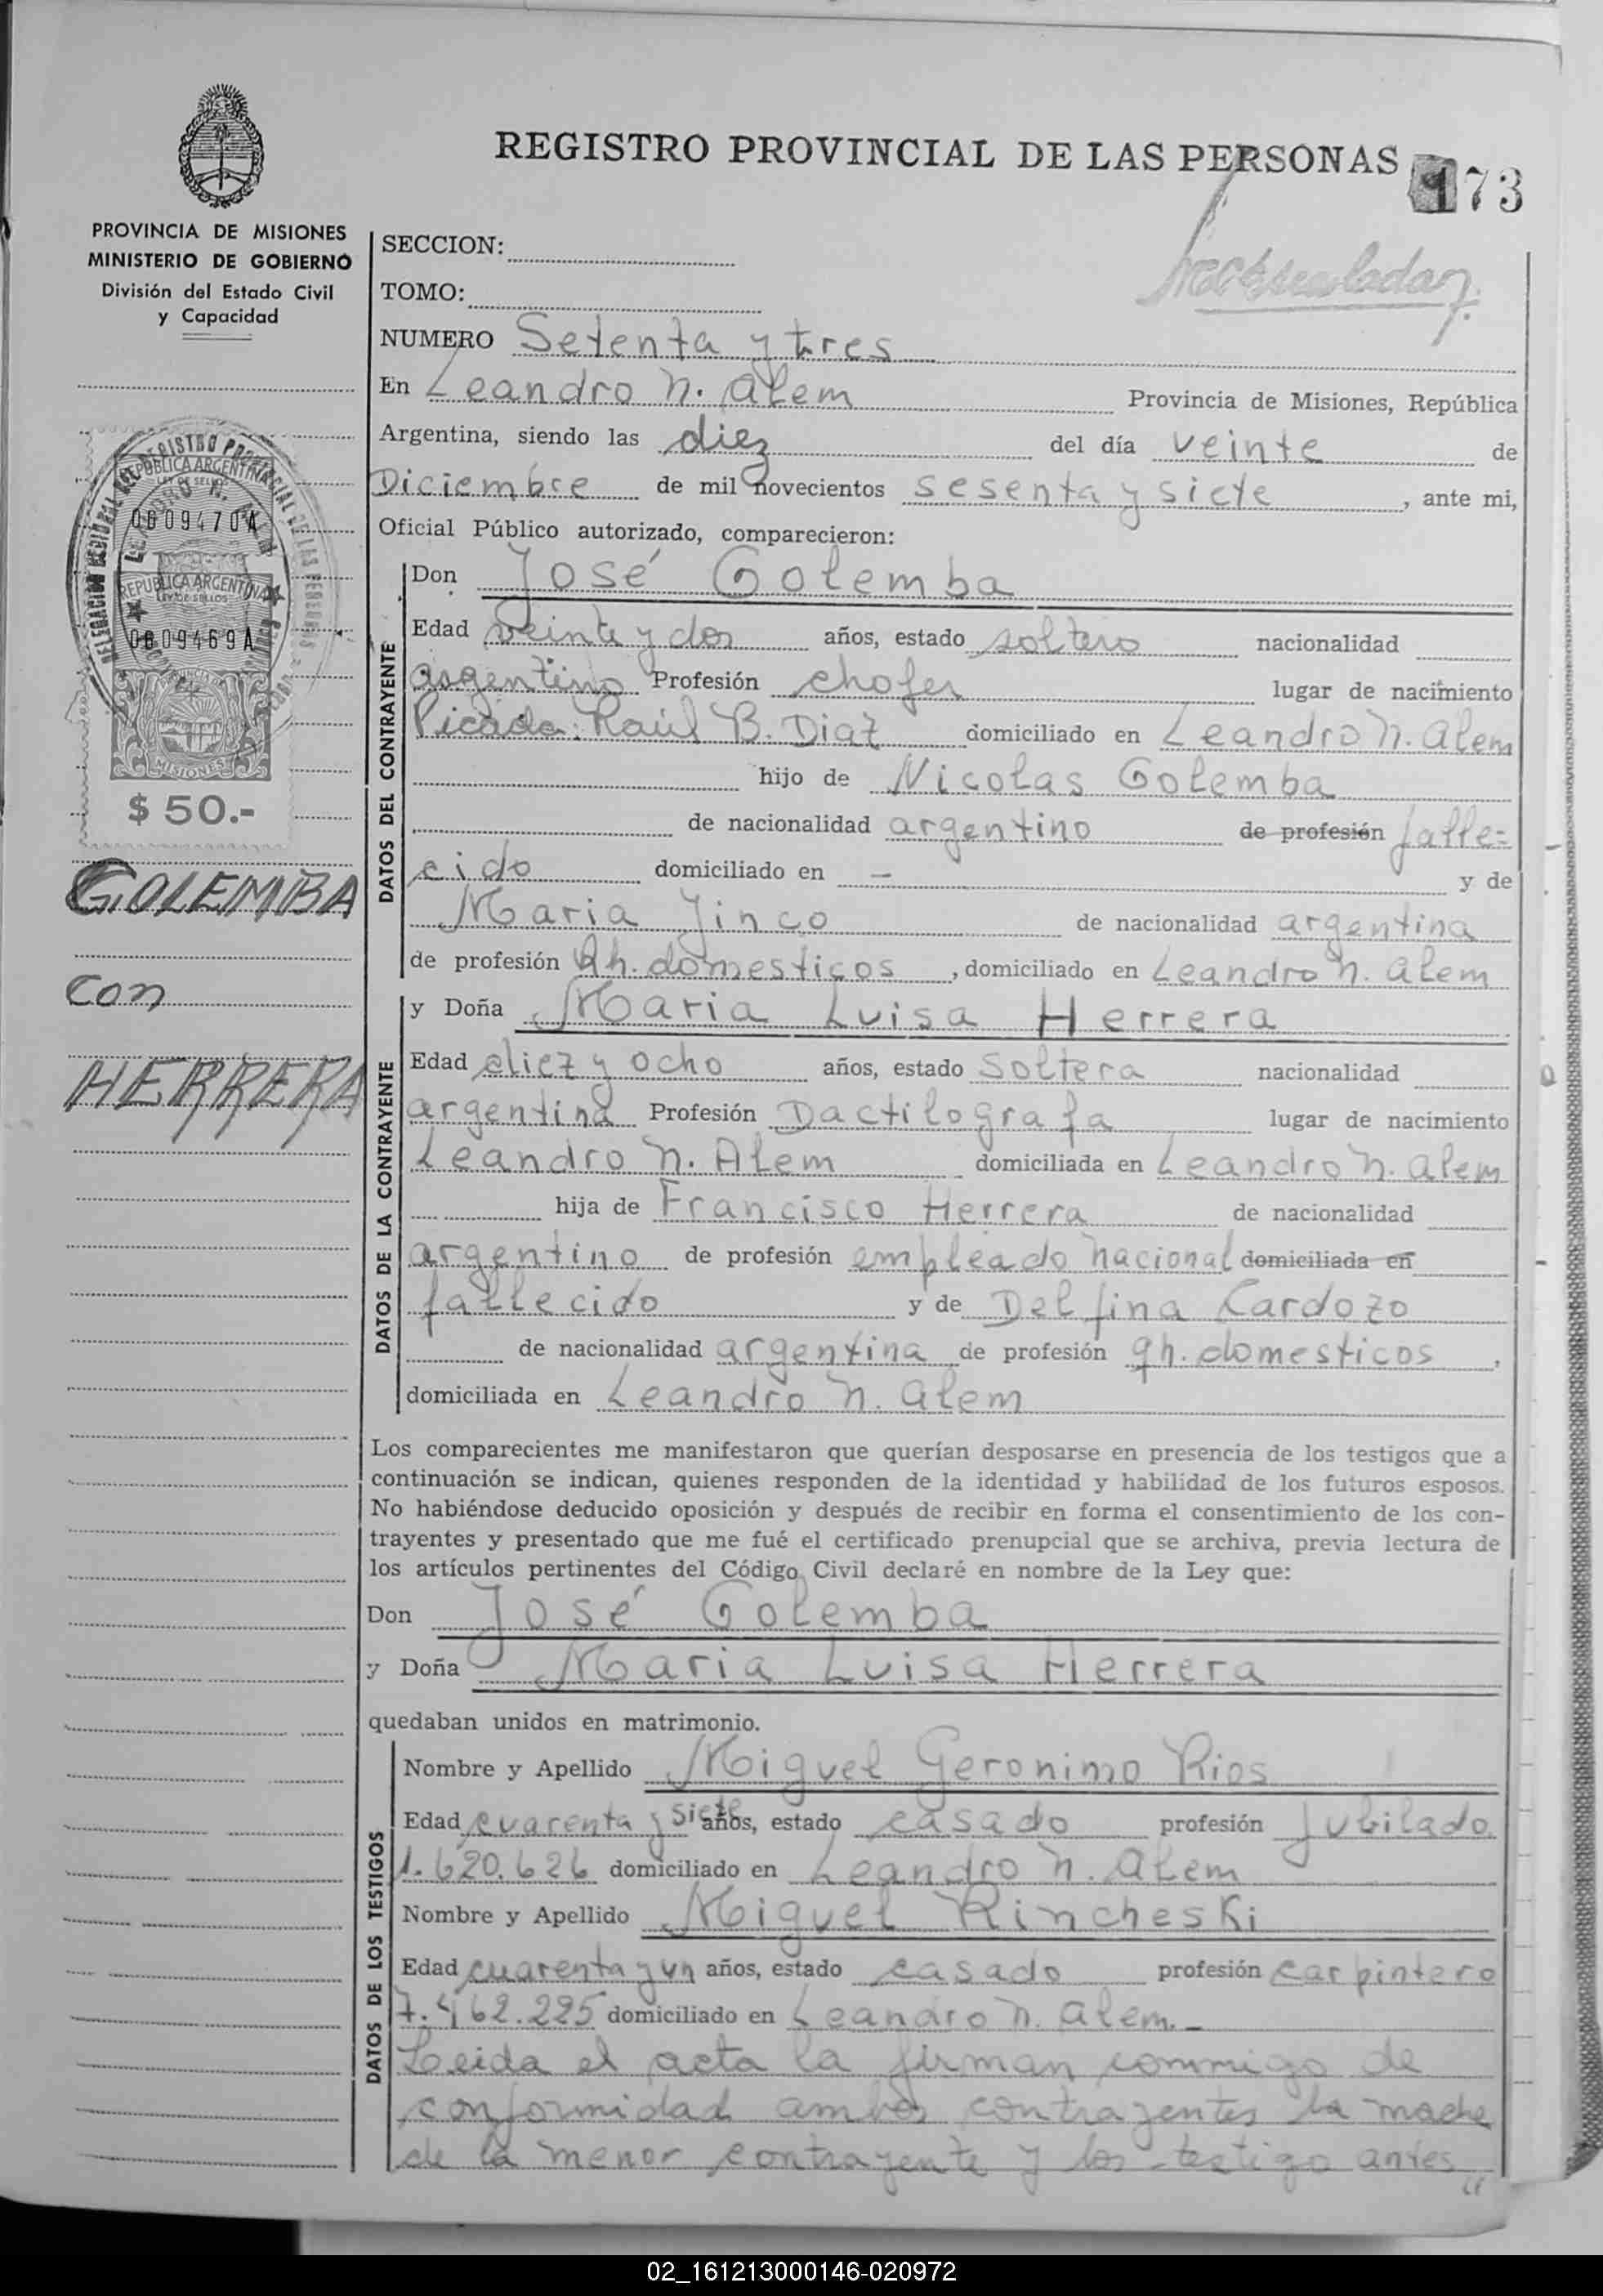 REGISTRO PROVINCIAL DE LAS PERSONAS
173
PROVINCIA DE MISIONES
MINISTERIO DE GOBIERNO
División del Estado Civil
y Capacidad
SECCION:
TOMO:
NUMERO Setenta y tres
En Leandro N. Alem Provincia de Misiones, República
Argentina, siendo las diez del día veinte de
Diciembre de mil novecientos sesenta y siete, ante mi,
Oficial Público autorizado, comparecieron:
REPUBLICA ARGENTINA
LEY DE SELLOS
0609470A
REPUBLICA ARGENTINA
LEY DE SELLOS
0609469A
MISIONES
$ 50.-
GOLEMBA
con
HERRERA
DATOS DEL CONTRAYENTE
Don José Golemba
Edad veinte y dos años, estado soltero nacionalidad
argentino Profesión chofer lugar de nacimiento
Picada: Raúl B. Diaz domiciliado en Leandro N. Alem
hijo de Nicolas Golemba
de nacionalidad argentino de profesión falle=
cido domiciliado en — y de
Maria Jinco de nacionalidad argentina
de profesión qh. domesticos, domiciliado en Leandro N. Alem
DATOS DE LA CONTRAYENTE
y Doña Maria Luisa Herrera
Edad diez y ocho años, estado soltera nacionalidad
argentina Profesión Dactilografa lugar de nacimiento
Leandro N. Alem domiciliada en Leandro N. Alem
hija de Francisco Herrera de nacionalidad
argentino de profesión empleado nacional domiciliada en
fallecido y de Delfina Cardozo
de nacionalidad argentina de profesión qh. domesticos,
domiciliada en Leandro N. Alem
Los comparecientes me manifestaron que querían desposarse en presencia de los testigos que a
continuación se indican, quienes responden de la identidad y habilidad de los futuros esposos.
No habiéndose deducido oposición y después de recibir en forma el consentimiento de los con-
trayentes y presentado que me fué el certificado prenupcial que se archiva, previa lectura de
los artículos pertinentes del Código Civil declaré en nombre de la Ley que:
Don José Golemba
y Doña Maria Luisa Herrera
quedaban unidos en matrimonio.
DATOS DE LOS TESTIGOS
Nombre y Apellido Miguel Geronimo Rios
Edad cuarenta y siete años, estado casado profesión Jubilado
1.620.626 domiciliado en Leandro N. Alem
Nombre y Apellido Miguel Rincheski
Edad cuarenta y un años, estado casado profesión carpintero
7.462.225 domiciliado en Leandro N. Alem.-
Leida el acta la firman conmigo de
conformidad ambos contrayentes la madre
de la menor contrayente y los testigo antes
02_161213000146-020972